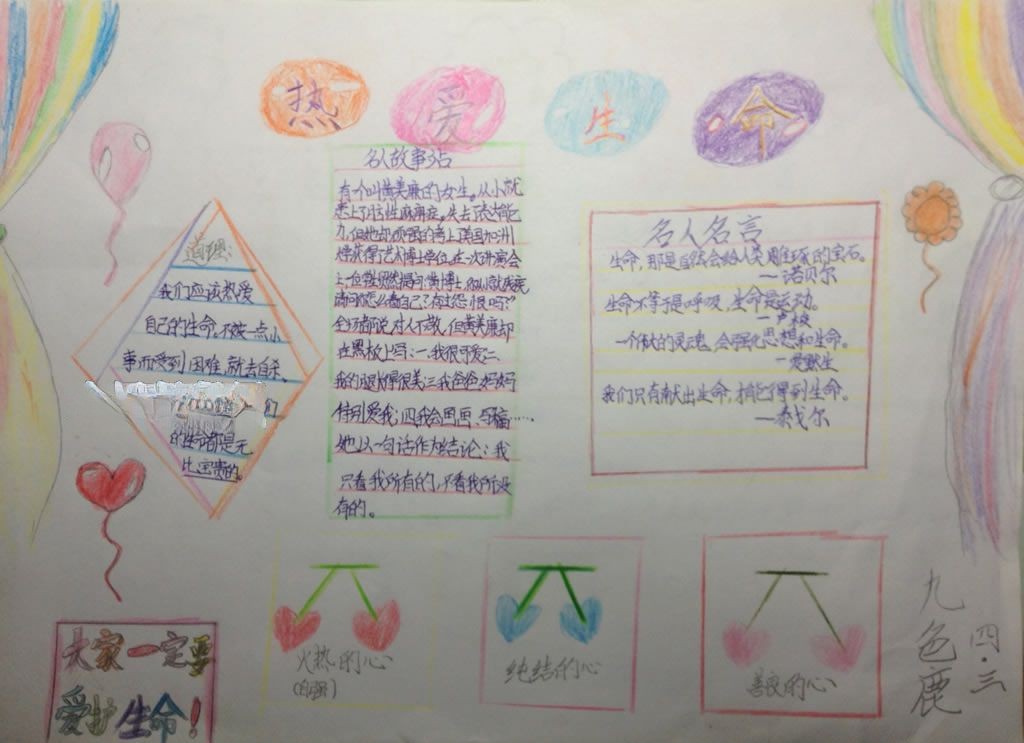 热爱生命
道理:
我们应该热爱
自己的生命,不被一点小
事而受到困难,就去自杀、
们
的生命都是无
比宝贵的。
名人故事站
有一个叫黄美廉的女生。从小就
患上了脑性麻痹症。失去了表达能
力,但她却顽强的考上美国加州
大学获得了艺术博士学位。在一次讲演会
上,一位
请问你怎么看自己?有过怨恨吗?”
全场都说对人不敬,但黄美廉却
在黑板上写:一.我很可爱二.
我的腿很美三我爸爸妈妈
特别爱我;四我会画画、写稿……
她以一句话作为结论:我
只看我所有的,不看我所没
有的。
名人名言
生命,那是自然会给人类雕琢的宝石。
—诺贝尔
生命不等于是呼吸,生命是运动。
—卢梭
一个伟大的灵魂,会强化思想和生命。
—爱默生
我们只有献出生命,才能得到生命。
—泰戈尔
大家一定要
爱护生命!
火热的心
(自强)
纯结的心
善良的心
九色鹿
四.三